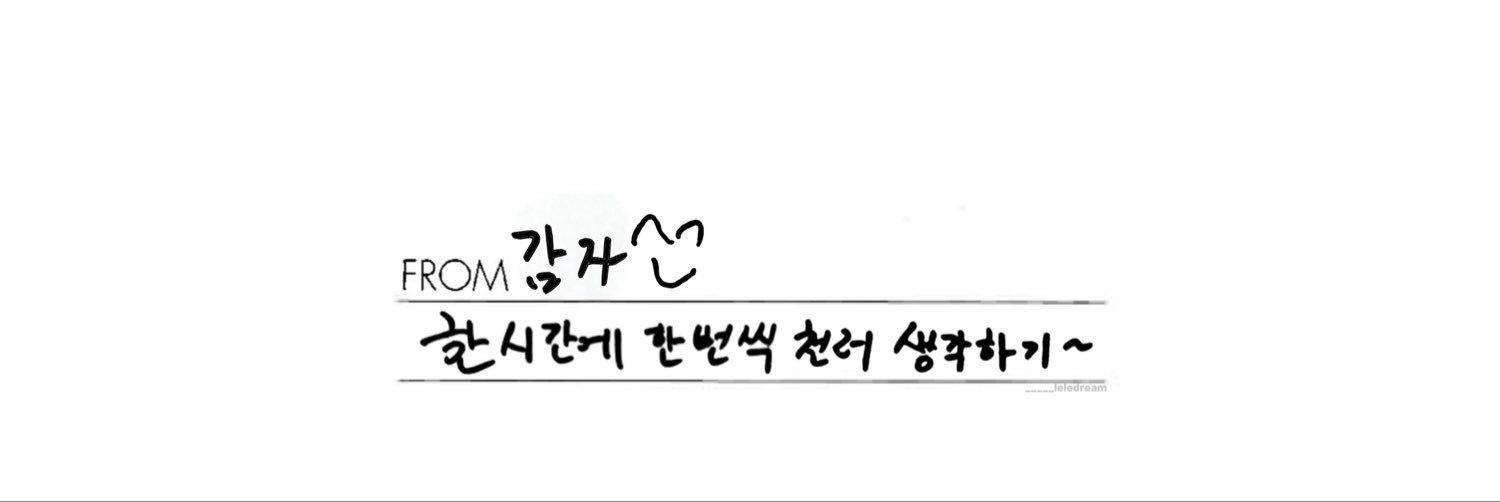 FROM 감자
한시간에 한번씩 천러 생각하기~
leledream